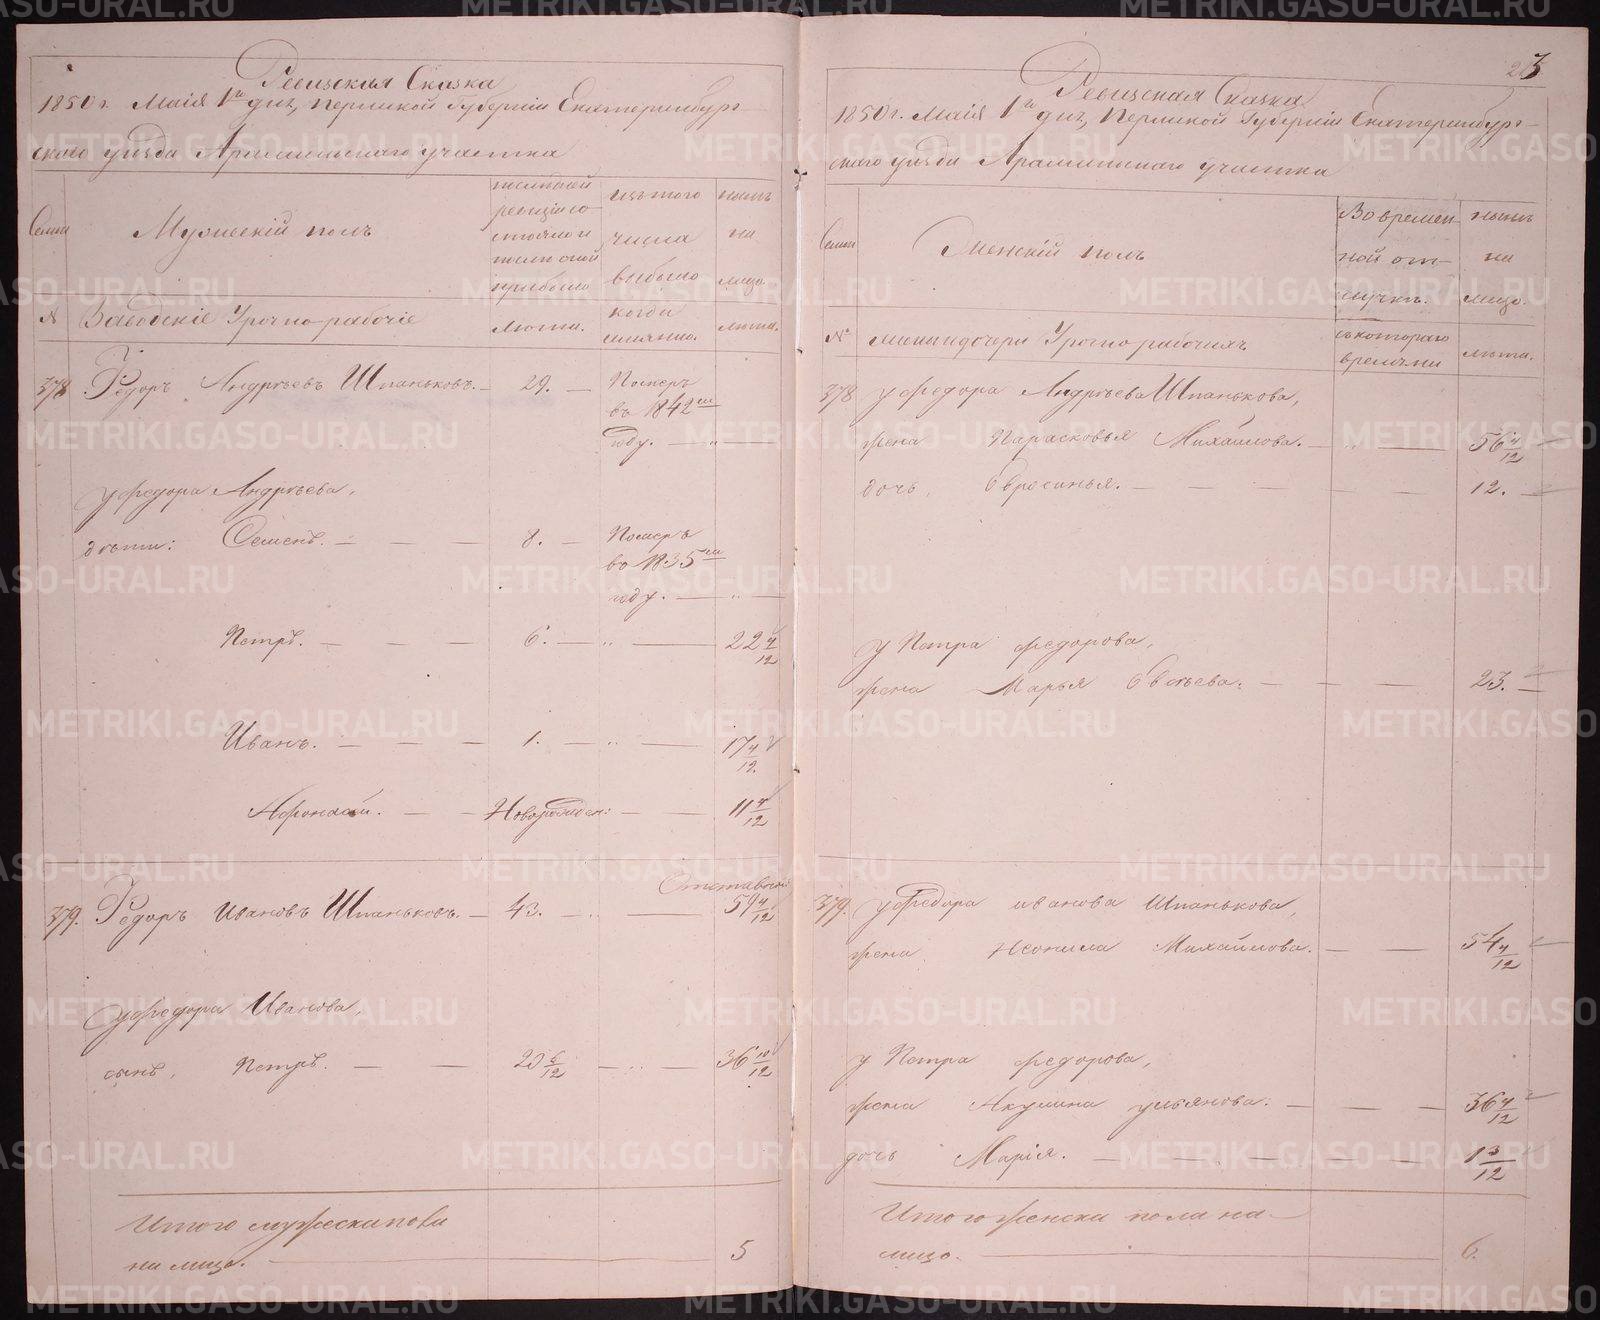 Ревизская Сказка
1850 г. Маія 1го дня, Пермской Губерніи Екатеринбург-
скаго уѣзда Арамильскаго участка
Семьи
Мужескій полъ
последней ревизіи со-
стояло и
после оной
прибыло
изъ того
числа
выбыло
нынѣ
на
лицо.
№
Заводскіе Урочно-рабочіе
лѣта.
когда
именно.
лѣта.
378 Ѳедоръ Андрѣевъ Шпаньковъ. — 29. — Померъ
въ 1842 мъ
году. — „ —
у Ѳедора Андрѣева,
дѣти: Семенъ. — 8. — Померъ
въ 1835 мъ
году. — „ —
Петръ. — 6. — „ — 22 4/12
Иванъ. — 1. — „ — 17 4/12
Афонасій. — Новорожден: — 11 4/12
Отставной
379. Ѳедоръ Ивановъ Шпаньковъ. — 43. — „ — 59 4/12
у Ѳедора Иванова,
сынъ, Петръ. — 20 6/12 — „ — 36 10/12
Итого мужеска пола
на лицо. — 5
23
Ревизская Сказка
1850 г. Маія 1го дня, Пермской Губерніи Екатеринбург-
скаго уѣзда Арамильскаго участка
Семьи
Женскій полъ
Во времен-
ной от-
лучкѣ.
нынѣ
на
лицо.
№
жены и дочери Урочнорабочихъ
съ котораго
времяни
лѣта.
378 у Ѳедора Андрѣева Шпанькова,
жена Парасковья Михайлова. — „ — 56 4/12
дочь, Евросинья. — 12. —
у Петра Ѳедорова,
жена Марья Евсѣева. — 23. —
379. у Ѳедора Иванова Шпанькова,
жена Неонила Михайлова. — 54 4/12
у Петра Ѳедорова,
жена Акулина Ульянова. — 36 4/12
дочь Марія. — 1 3/12
Итого женска пола на
лицо. — 6.
METRIKI.GASO-URAL.RU